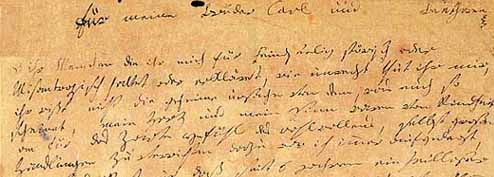 für meine Brüder Carl und
o ihr Menschen die ihr mich für Feindseelig störisch oder
Misantropisch haltet oder erkläret, wie unrecht thut ihr mir,
ihr wißt nicht die geheime urßache von dem, was euch so
scheinet, mein Herz und mein Sinn waren von Kindheit
an für das Zarte Gefühl des wohlwollens, selbst große
Handlungen zu verrichten dazu war ich immer aufgelegt,
daß seit 6 Jahren ein heilloser